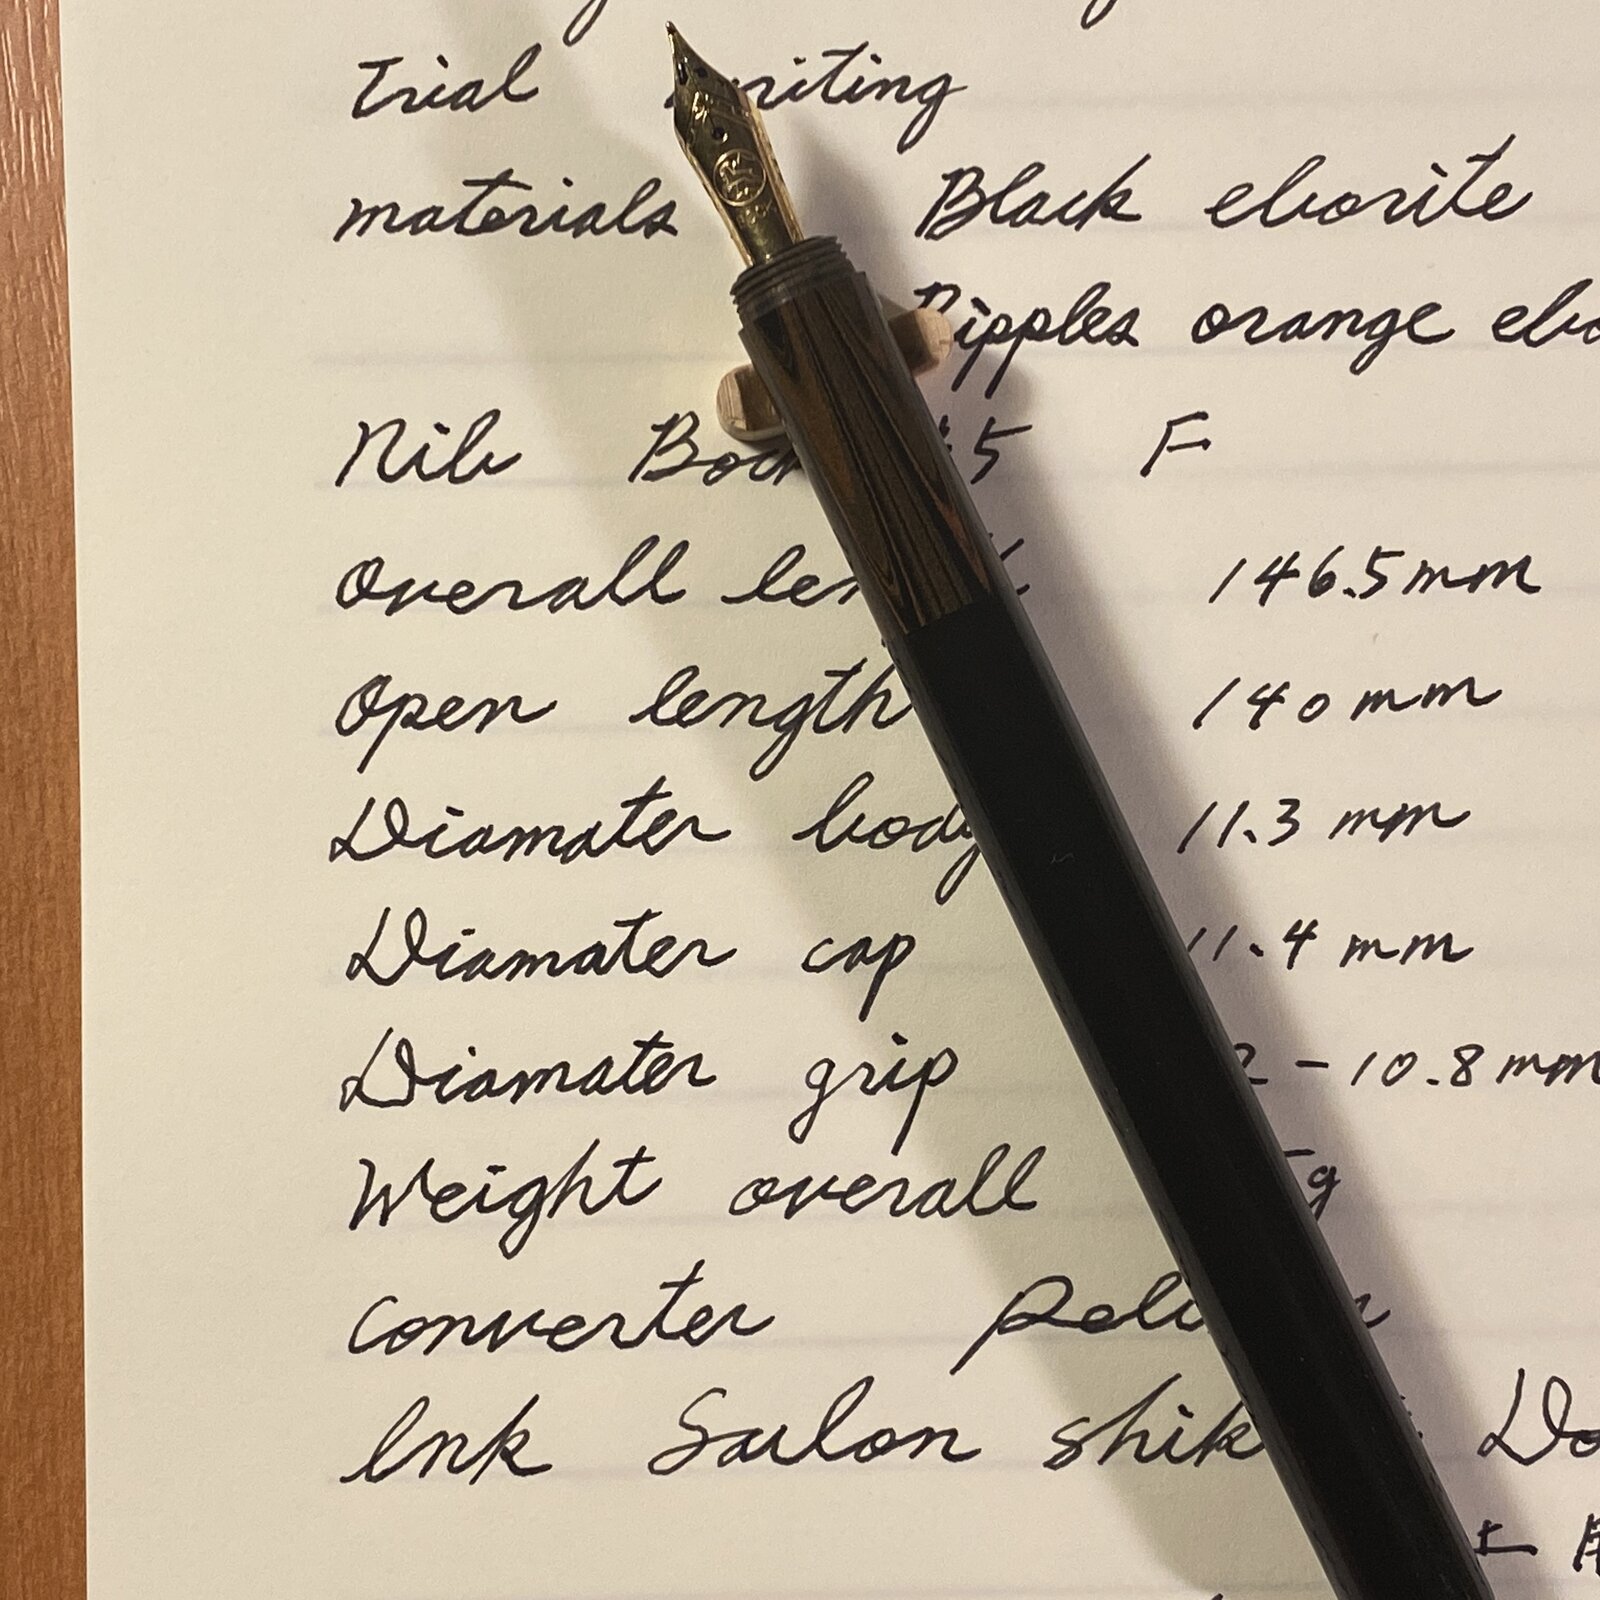 Trial writing
materials Black eborite
Ripples orange
Nib #5 F
Overall length 146.5mm
Open length 140mm
Diamater body 11.3 mm
Diamater cap 11.4 mm
Diamater grip - 10.8mm
Weight overall g
Converter
Ink Sailon